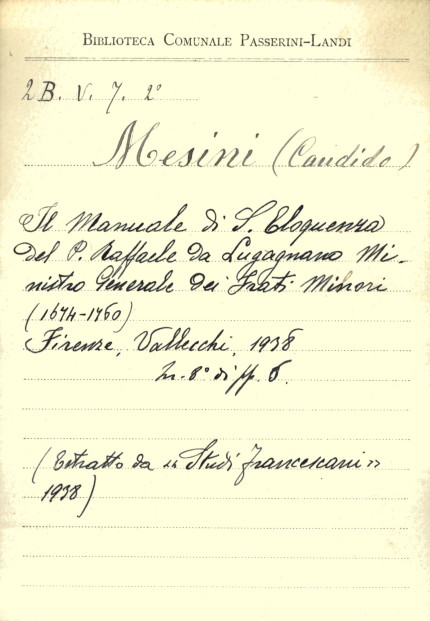 BIBLIOTECA COMUNALE PASSERINI-LANDI
2B. V. 7. 2°
Mesini (Candido)
Il Manuale di S. Eloquenza
del P. Raffaele da Lugagnano Mi-
nistro Generale dei Frati Minori
(1674-1760)
Firenze, Vallecchi, 1938
In 8° di pp. 6.
(Estratto da "Studi francescani"
1938)